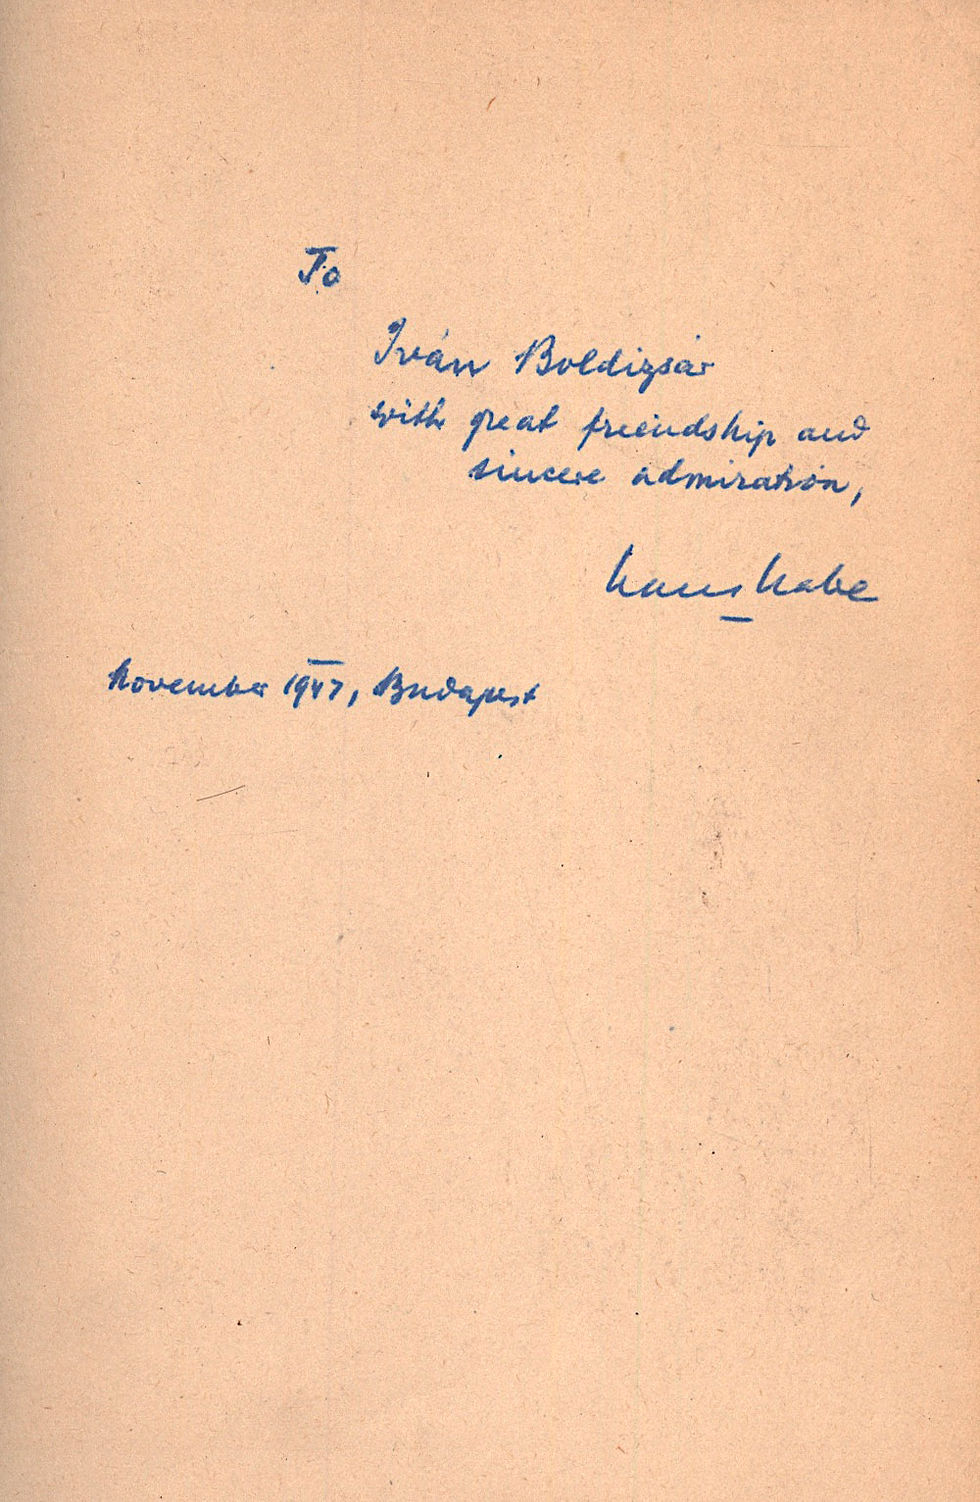 To
Iván Boldizsár
with great friendship and
sincere admiration,
Hans Habe
November 1947, Budapest